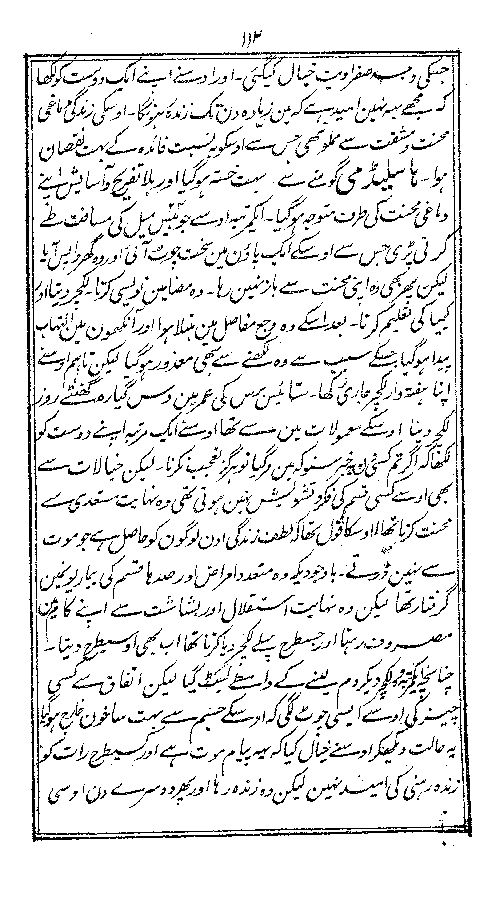 ۱۱۲
جسکی وجہ صفراویت خیال کیگئی۔ اور اوسنے اپنے ایک دوست کو لکھا
کہ مجھے یہہ نہین امید ہے کہ مین زیادہ دن تک زندہ ہونگا۔ اوسکی زندگی دماغی
محنت و مشقت سے مملو تھی جس سے اوسکو بہ نسبت فائدہ کے بہت نقصان
ہوا۔ سے بہت خستہ ہوگیا اور بلا تفریح و آسایش اپنے
داغی محنت کی طرف متوجہ ہوگیا۔ ایکمرتبہ اوسے چوبیس میل کی مسافت طے
کرنی پڑی جس سے اوسکے ایک پاؤن مین سخت چوٹ آئی اور وہ گھر واپس آیا
لیکن پھر بھی وہ اپنی محنت سے باز نہین رہا۔ وہ مضامین نویسی کرتا۔ لکچر دیتا اور
کیمیا کی تعلیم کرتا۔ بعد اسکے وہ وجع مفاصل مین مبتلا ہوا اور آنکھون مین التہاب
پیدا ہوگیا جسکے سبب سے وہ لکھنے سے بھی معذور ہوگیا لیکن تاہم اوسنے
اپنا ہفتہ وار لکچر جاری رکھا۔ ستائیس برس کی عمر مین دس گیارہ گھنٹے روز
لکچر دینا اوسکے معمولات مین سے تھا اوسنے ایک مرتبہ اپنے دوست کو
لکھا کہ اگر تم کسی دن یہ خبر سنو کہ مین مر گیا تو ہرگز تعجب نکرنا۔ لیکن خیالات سے
بھی اوسے کسی قسم کی فکر و تشویش نہین ہوتی تھی وہ نہایت مستعدی سے
محنت کرتا تھا اوسکا قول تھا کہ لطف زندگی اون لوگون کو حاصل ہے جو موت
سے نہین ڈرتے۔ باوجودیکہ وہ متعدد امراض اور صدہا قسم کی بیماریونمین
گرفتار تھا لیکن وہ نہایت استقلال اور بشاشت سے اپنے کام مین
مصروف رہتا اور جسطرح پہلے لکچر دیا کرتا تھا اب بھی اوسیطرح دیتا۔
چنانچہ ایکمرتبہ وہ لکچر دیکر دم لینے کے واسطے لیٹ گیا لیکن اتفاق سے کسی
چیز کی اوسے ایسی چوٹ لگی کہ اوسکے جسم سے بہت سا خون خارج ہوگیا
یہ حالت دیکھکر اوسنے خیال کیا کہ یہہ پیام موت ہے اور کسیطرح رات کو
زندہ رہنی کی امید نہین لیکن وہ زندہ رہا اور پھر دوسرے دن اوسی